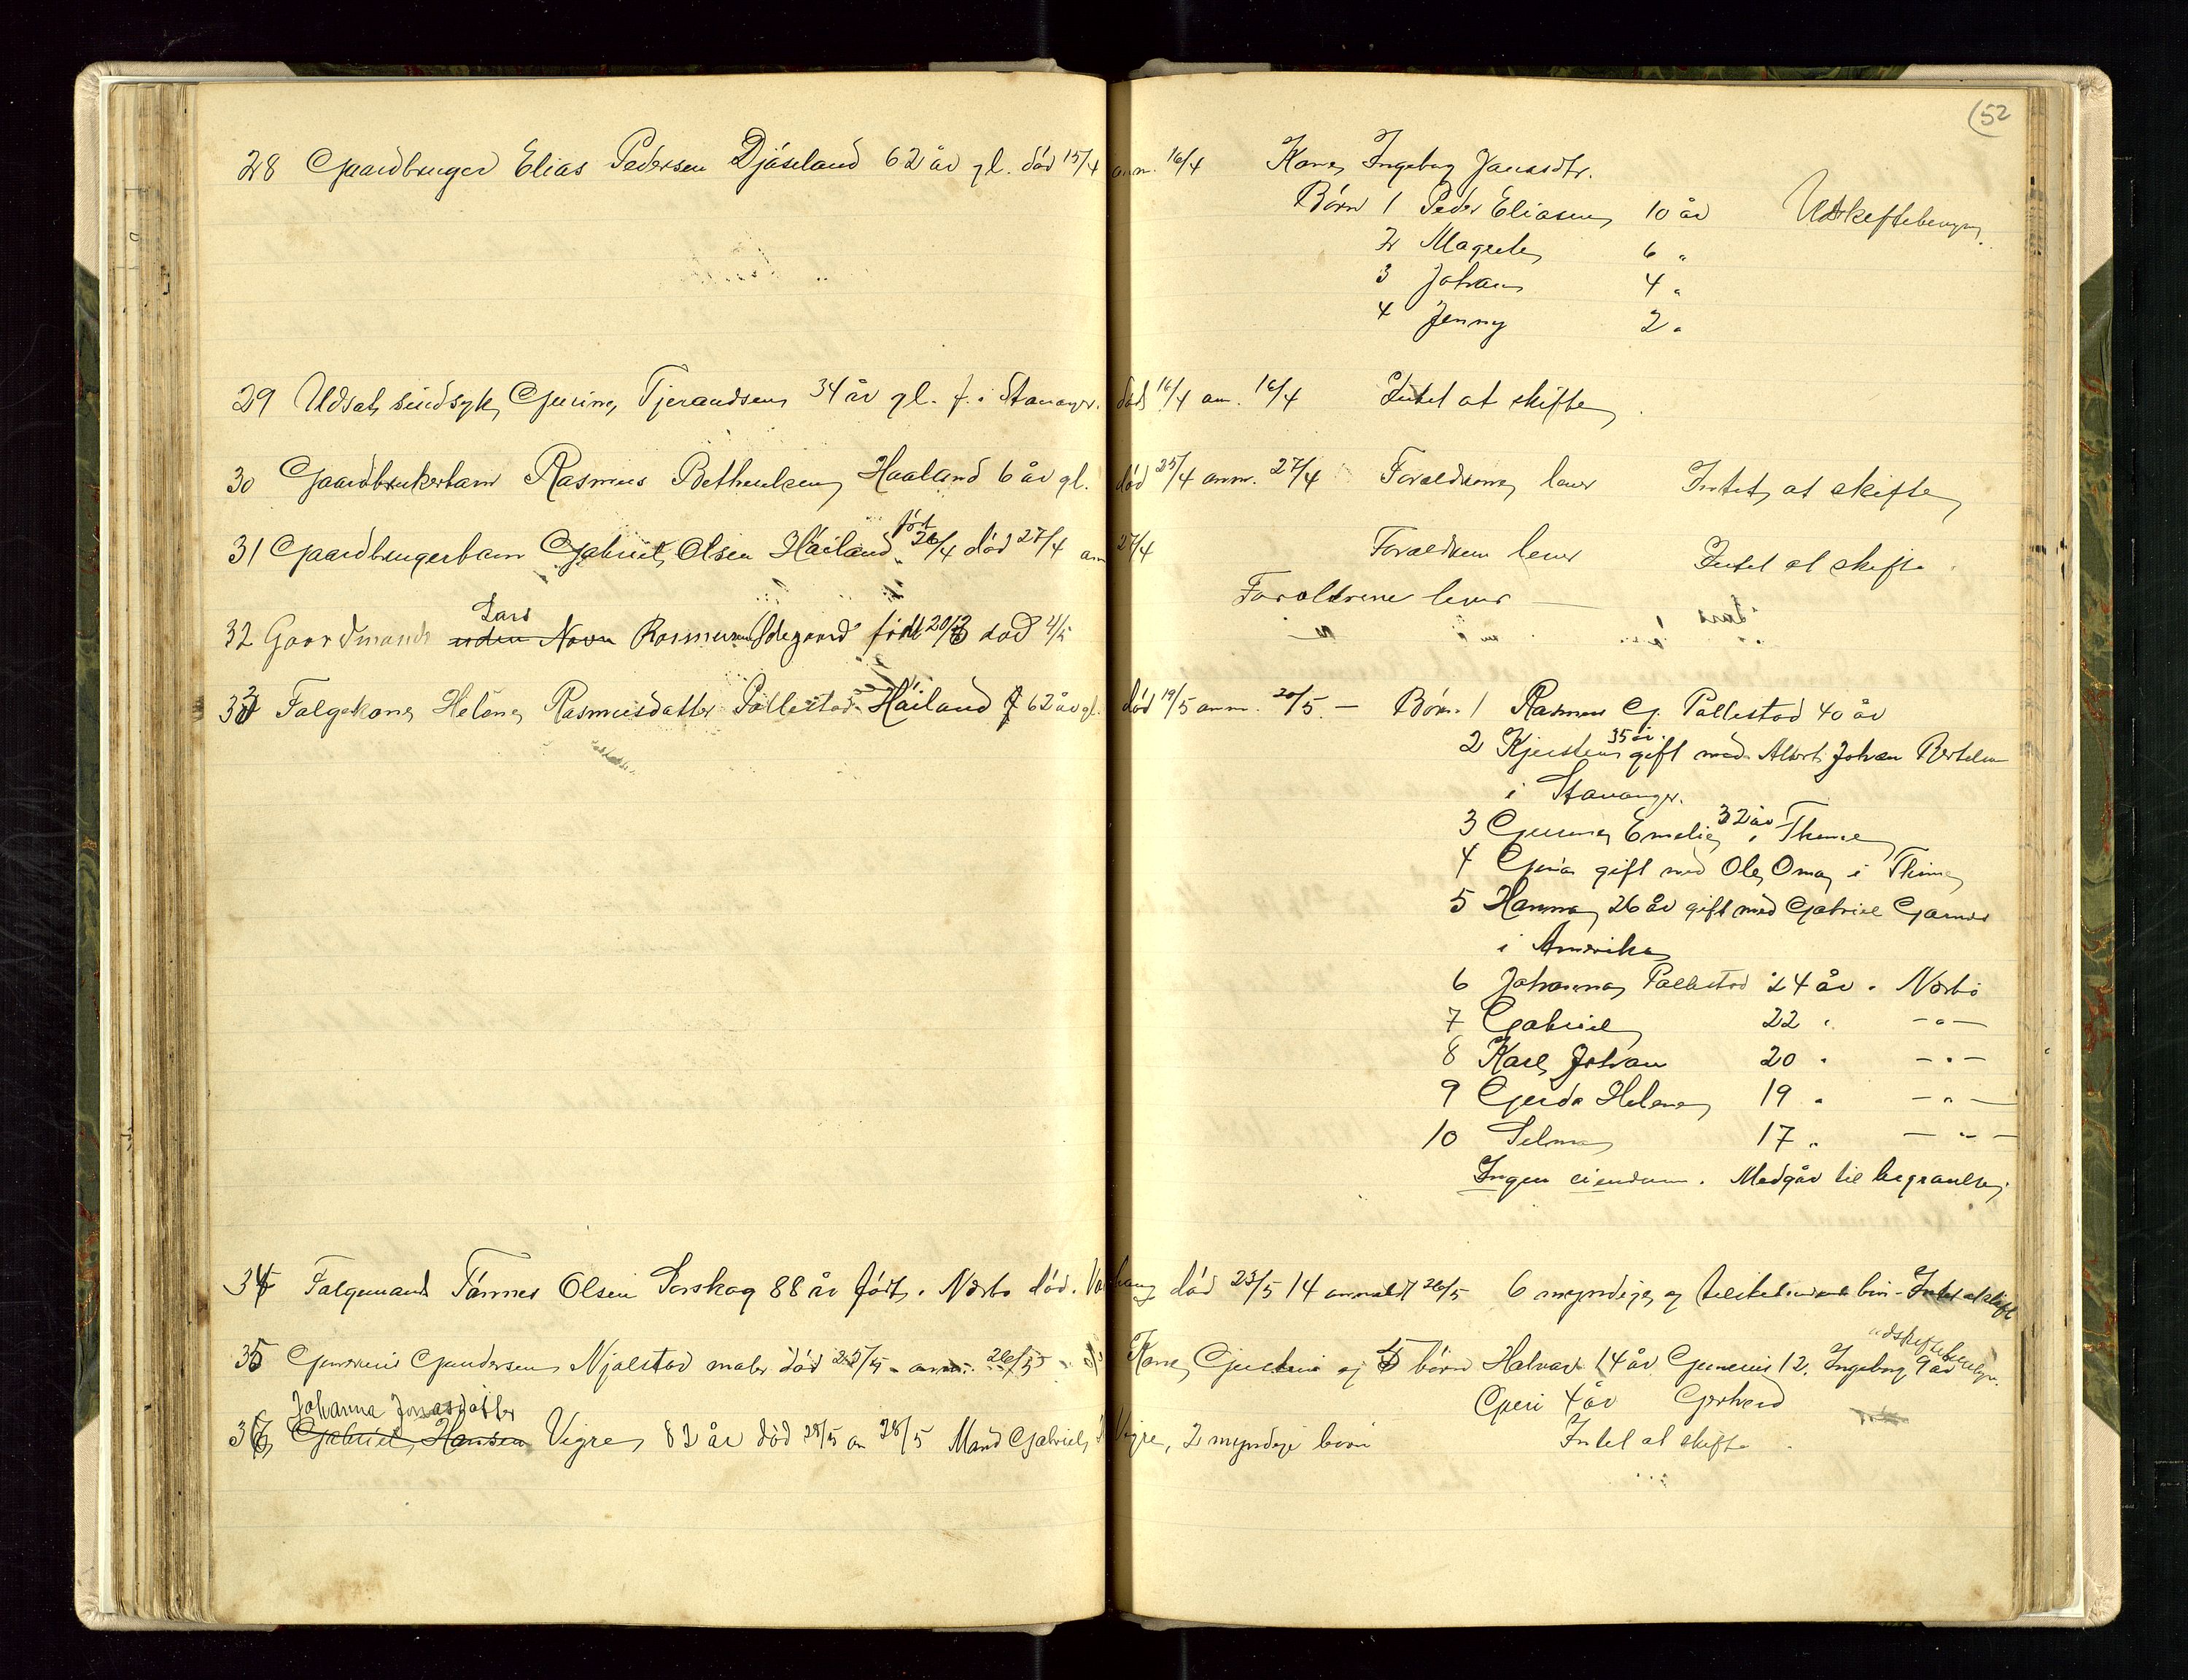 52
28 Gaardbruger Elias Pedersen Djåseland 62 år gl. død 15/4 anm. 16/4 Kone Ingeborg Janasdtr.
Børn 1 Peder Eliasen 10 år Uskiftebevgn.
2 Magrete 6 "
3 Johan 4 "
4 Jenny 2 "
29 Udsat sindsyk Gurine Tjerandsen 34 år gl. f. i Stavanger. død 16/4 an. 16/4 Intet at skifte
30 Gaardbrukerbarn Rasmus Bethuelsen Haaland 6 år gl. død 25/4 anm. 27/4 Forældrene lever Intet at skifte
31 Gaardbrugerbarn Gabriel Olsen Håiland født 26/4 død 27/4 anm 27/4 Forældrene lever Intet at skifte
Forældrene lever —
Lars
32 Gaardmands uden Navn Rasmussen Ødegaard født 20/3 død 4/5
33 Folgekone Helene Rasmusdatter Pallestad Håiland 62 år gl. død 19/5 anm. 20/5. — Børn. 1 Rasmus G. Pallestad 40 år
2 Kjerstine 35 år. gift med Albert Johan Bertelsen
i Stavanger.
3 Gunna Emelie 32 år i Thime
4 Gina gift med Ole Oma i Thime
5 Hanna 26 år gift med Gabriel Garnes
i Amerika
6 Johanna Pallestad 24 år. Nærbø
7 Gabriel 22 " — " —
8 Karl Johan 20 " — " —
9 Gerda Helene 19 " — " —
10 Selma 17 " — " —
Ingen eiendom. Medgår til begravelse.
34 Folgemand Tønnes Olsen Torskog 88 år født i Nærbø død i Varhaug død 23/5 14 anmeldt 26/5 6 myndige og tilstedeværende børn - Intet at skifte
uskiftebevilgn.
35 Gunerius Gundersen Njølstad maler død 25/5 anm. 26/5 Kone Gustine og 5 børn Halvar 14 år Gunerius 12, Ingeborg 9 år
Johanna Jonasdatter Guri 4 år Gerhard
36 Gabriel Hansen Vigre 82 år død 28/5 an 28/5 Mand Gabriel Vigre, 2 myndige børn Intet at skifte